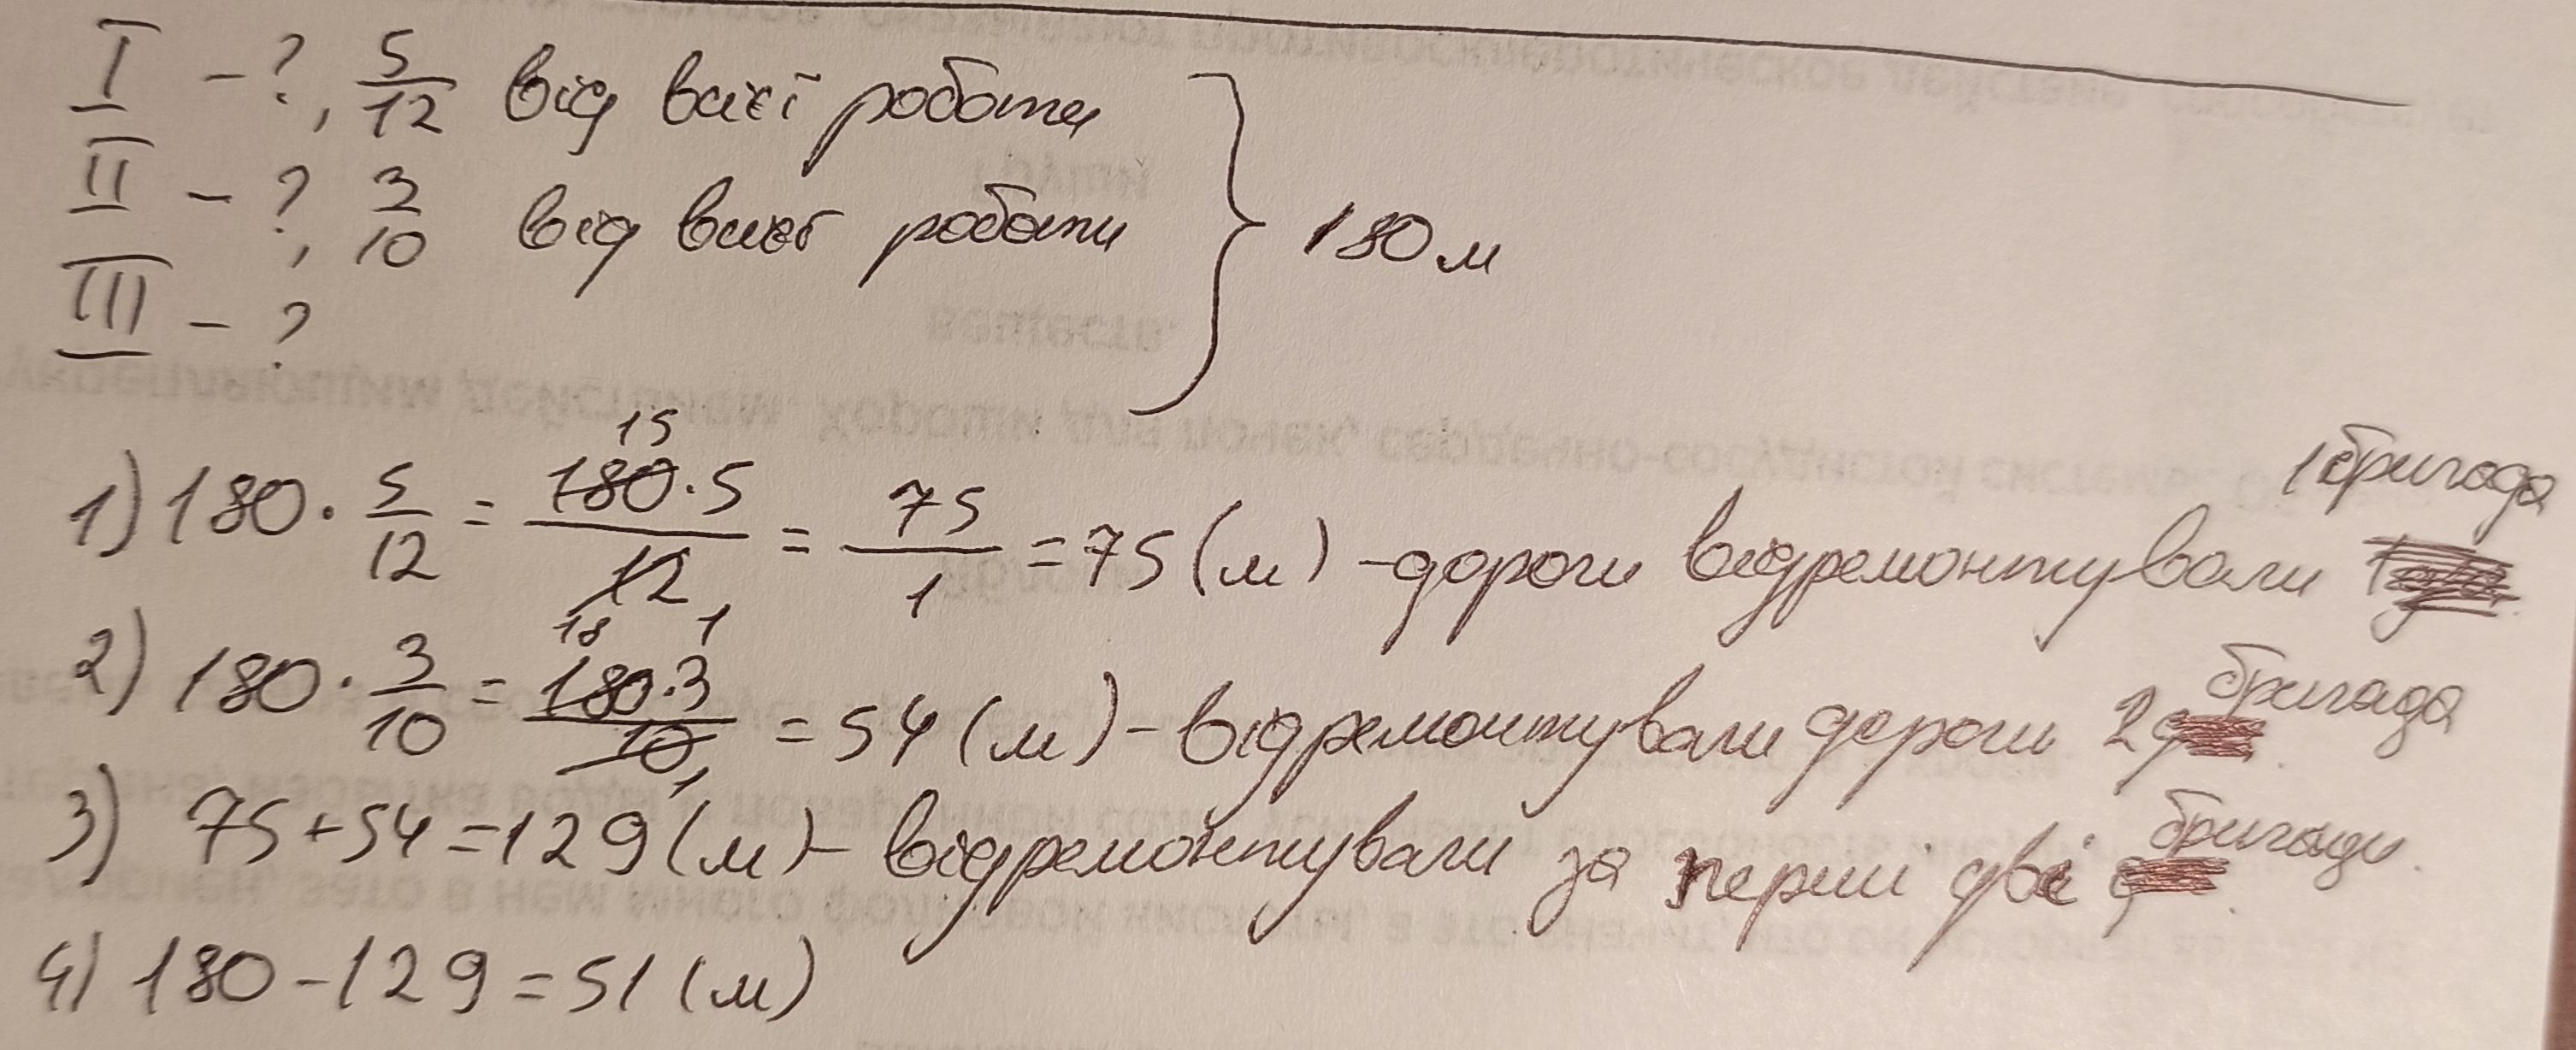 I – ?, 5/12 від всієї роботи
II – ?, 3/10 від всієї роботи
III – ?
180 м
1) 180 · 5/12 = 180·5/12 = 75/1 = 75 (м) – дороги відремонтували 1 бригада
2) 180 · 3/10 = 180·3/10 = 54 (м) – відремонтували дороги 2 бригада
3) 75 + 54 = 129 (м) – відремонтували за перші дві бригади.
4) 180 – 129 = 51 (м)